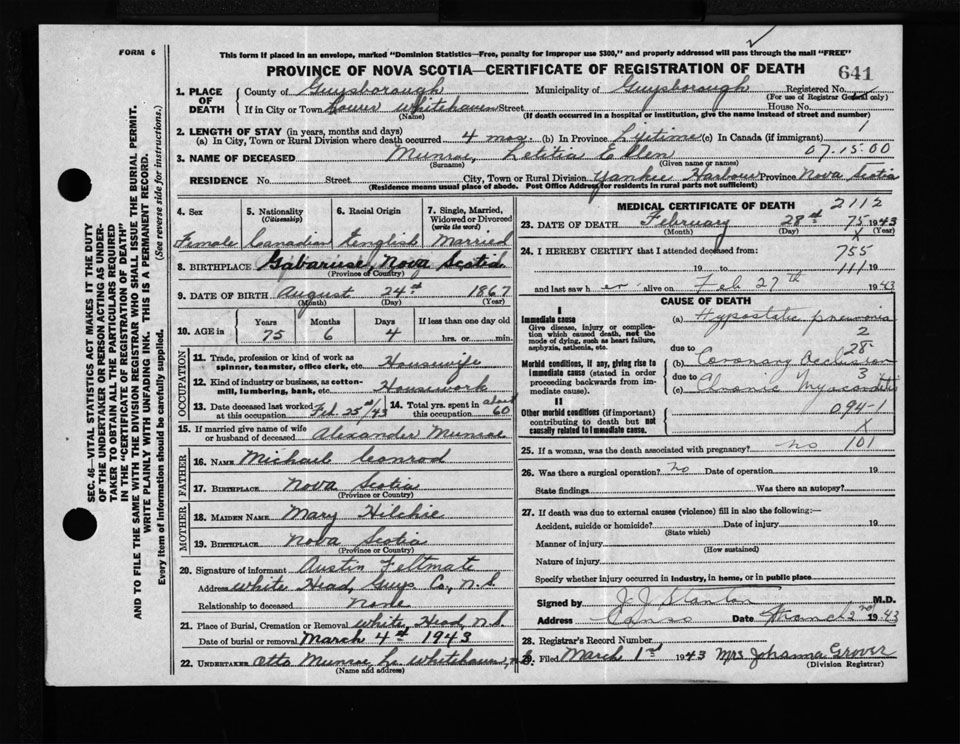 FORM 6
This form if placed in an envelope, marked "Dominion Statistics—Free, penalty for improper use $300," and properly addressed will pass through the mail "FREE"
PROVINCE OF NOVA SCOTIA—CERTIFICATE OF REGISTRATION OF DEATH
641
1. PLACE OF DEATH
County of Guysborough Municipality of Guysborough Registered No.
(For use of Registrar General only)
If in City or Town Lower Whitehaven Street House No.
(Name) (If death occurred in a hospital or institution, give the name instead of street and number)
2. LENGTH OF STAY (in years, months and days)
(a) In City, Town or Rural Division where death occurred 4 mos. (b) In Province Lifetime (c) In Canada (if immigrant)
07-15-00
3. NAME OF DECEASED Munroe, Letitia Ellen
(Surname) (Given name or names)
RESIDENCE No. Street City, Town or Rural Division Yankee Harbour Province Nova Scotia
(Residence means usual place of abode. Post Office Address for residents in rural parts not sufficient)
4. Sex
Female
5. Nationality
(Citizenship)
Canadian
6. Racial Origin
English
7. Single, Married, Widowed or Divorced
(write the word)
Married
8. BIRTHPLACE Gabarus, Nova Scotia
(Province or Country)
9. DATE OF BIRTH August 24st 1867
(Month) (Day) (Year)
10. AGE in
Years Months Days If less than one day old
75 6 4 hrs. or min.
OCCUPATION
11. Trade, profession or kind of work as spinner, teamster, office clerk, etc. Housewife
12. Kind of industry or business, as cotton-mill, lumbering, bank, etc. Housework
13. Date deceased last worked at this occupation Feb. 25st/43
14. Total yrs. spent in this occupation about 60
15. If married give name of wife or husband of deceased Alexander Munroe
FATHER
16. NAME Michael Conrod
17. BIRTHPLACE Nova Scotia
(Province or Country)
MOTHER
18. MAIDEN NAME Mary Hilchie
19. BIRTHPLACE Nova Scotia
(Province or Country)
20. Signature of informant Austin Feltmate
Address White Head, Guys Co., N.S.
Relationship to deceased None
21. Place of Burial, Cremation or Removal White Head, N.S.
Date of burial or removal March 4st 1943
22. UNDERTAKER Otto Munroe, L. Whitehaven, N.S.
(Name and address)
MEDICAL CERTIFICATE OF DEATH
2112
23. DATE OF DEATH February 28st 1943
(Month) (Day) (Year)
75
X
24. I HEREBY CERTIFY that I attended deceased from:
755
19 to 19
111
and last saw h er alive on Feb 27th 1943
CAUSE OF DEATH
I
Immediate cause
Give disease, injury or complication which caused death, not the mode of dying, such as heart failure, asphyxia, asthenia, etc.
(a) Hypostatic pneumonia
2
due to
28
Morbid conditions, if any, giving rise to immediate cause (stated in order proceeding backwards from immediate cause).
(b) Coronary Occlusion
3
due to
(c) Chronic Myocarditis
II
Other morbid conditions (if important) contributing to death but not causally related to immediate cause.
094-1
X
25. If a woman, was the death associated with pregnancy? no
101
26. Was there a surgical operation? No Date of operation 19
State findings Was there an autopsy?
27. If death was due to external causes (violence) fill in also the following:—
Accident, suicide or homicide? Date of injury 19
(State which)
Manner of injury
(How sustained)
Nature of injury
Specify whether injury occurred in industry, in home, or in public place
Signed by J. J. Stanton M.D.
Address Canso Date March 2nd 1943
28. Registrar's Record Number
29. Filed March 1st 1943 Mrs. Johanna Grover
(Division Registrar)
SEC. 46—VITAL STATISTICS ACT MAKES IT THE DUTY
OF THE UNDERTAKER OR PERSON ACTING AS UNDER-
TAKER TO OBTAIN ALL THE PARTICULARS REQUIRED
IN THE "CERTIFICATE OF REGISTRATION OF DEATH"
AND TO FILE THE SAME WITH THE DIVISION REGISTRAR WHO SHALL ISSUE THE BURIAL PERMIT.
WRITE PLAINLY WITH UNFADING INK. THIS IS A PERMANENT RECORD.
Every item of information should be carefully supplied. (See reverse side for instructions.)